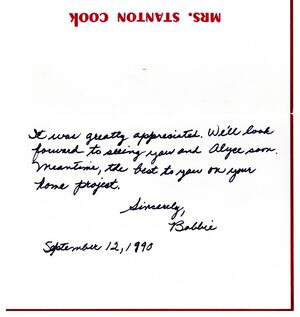 MRS. STANTON COOK
It was greatly appreciated. We'll look
forward to seeing you and Alyce soon.
Meantime, the best to you on your
home project.
Sincerely,
Bobbie
September 12, 1990